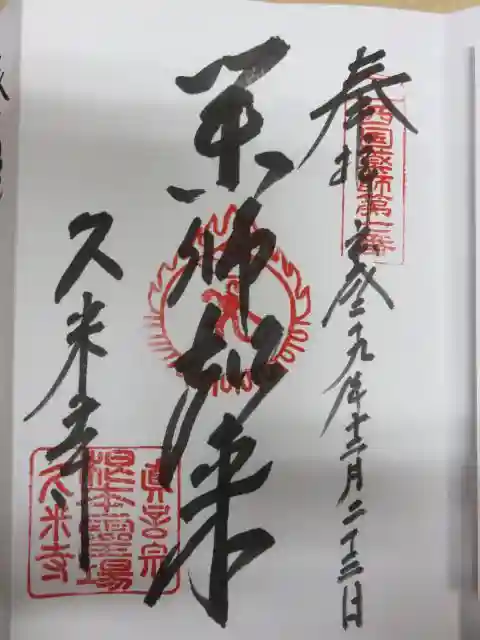 奉拝 平成二十九年十二月二十三日
西国薬師第一番
薬師如来
久米寺
真言宗
根本霊場
久米寺